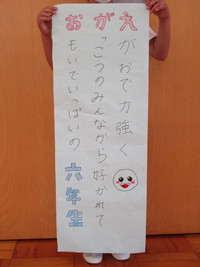 えがおで力強く
がっこうのみんなから好かれて
おもいでいっぱいの六年生